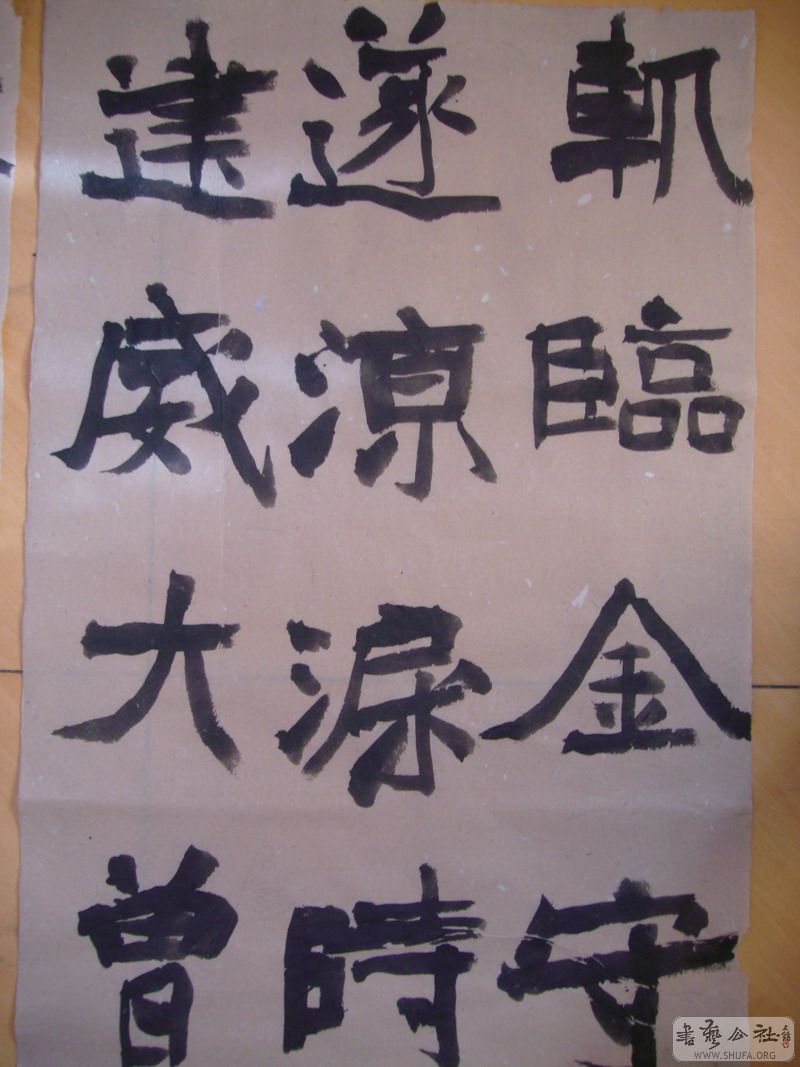 軌臨金守
遂時
建威大曾
書藝公社
WWW.SHUFA.ORG